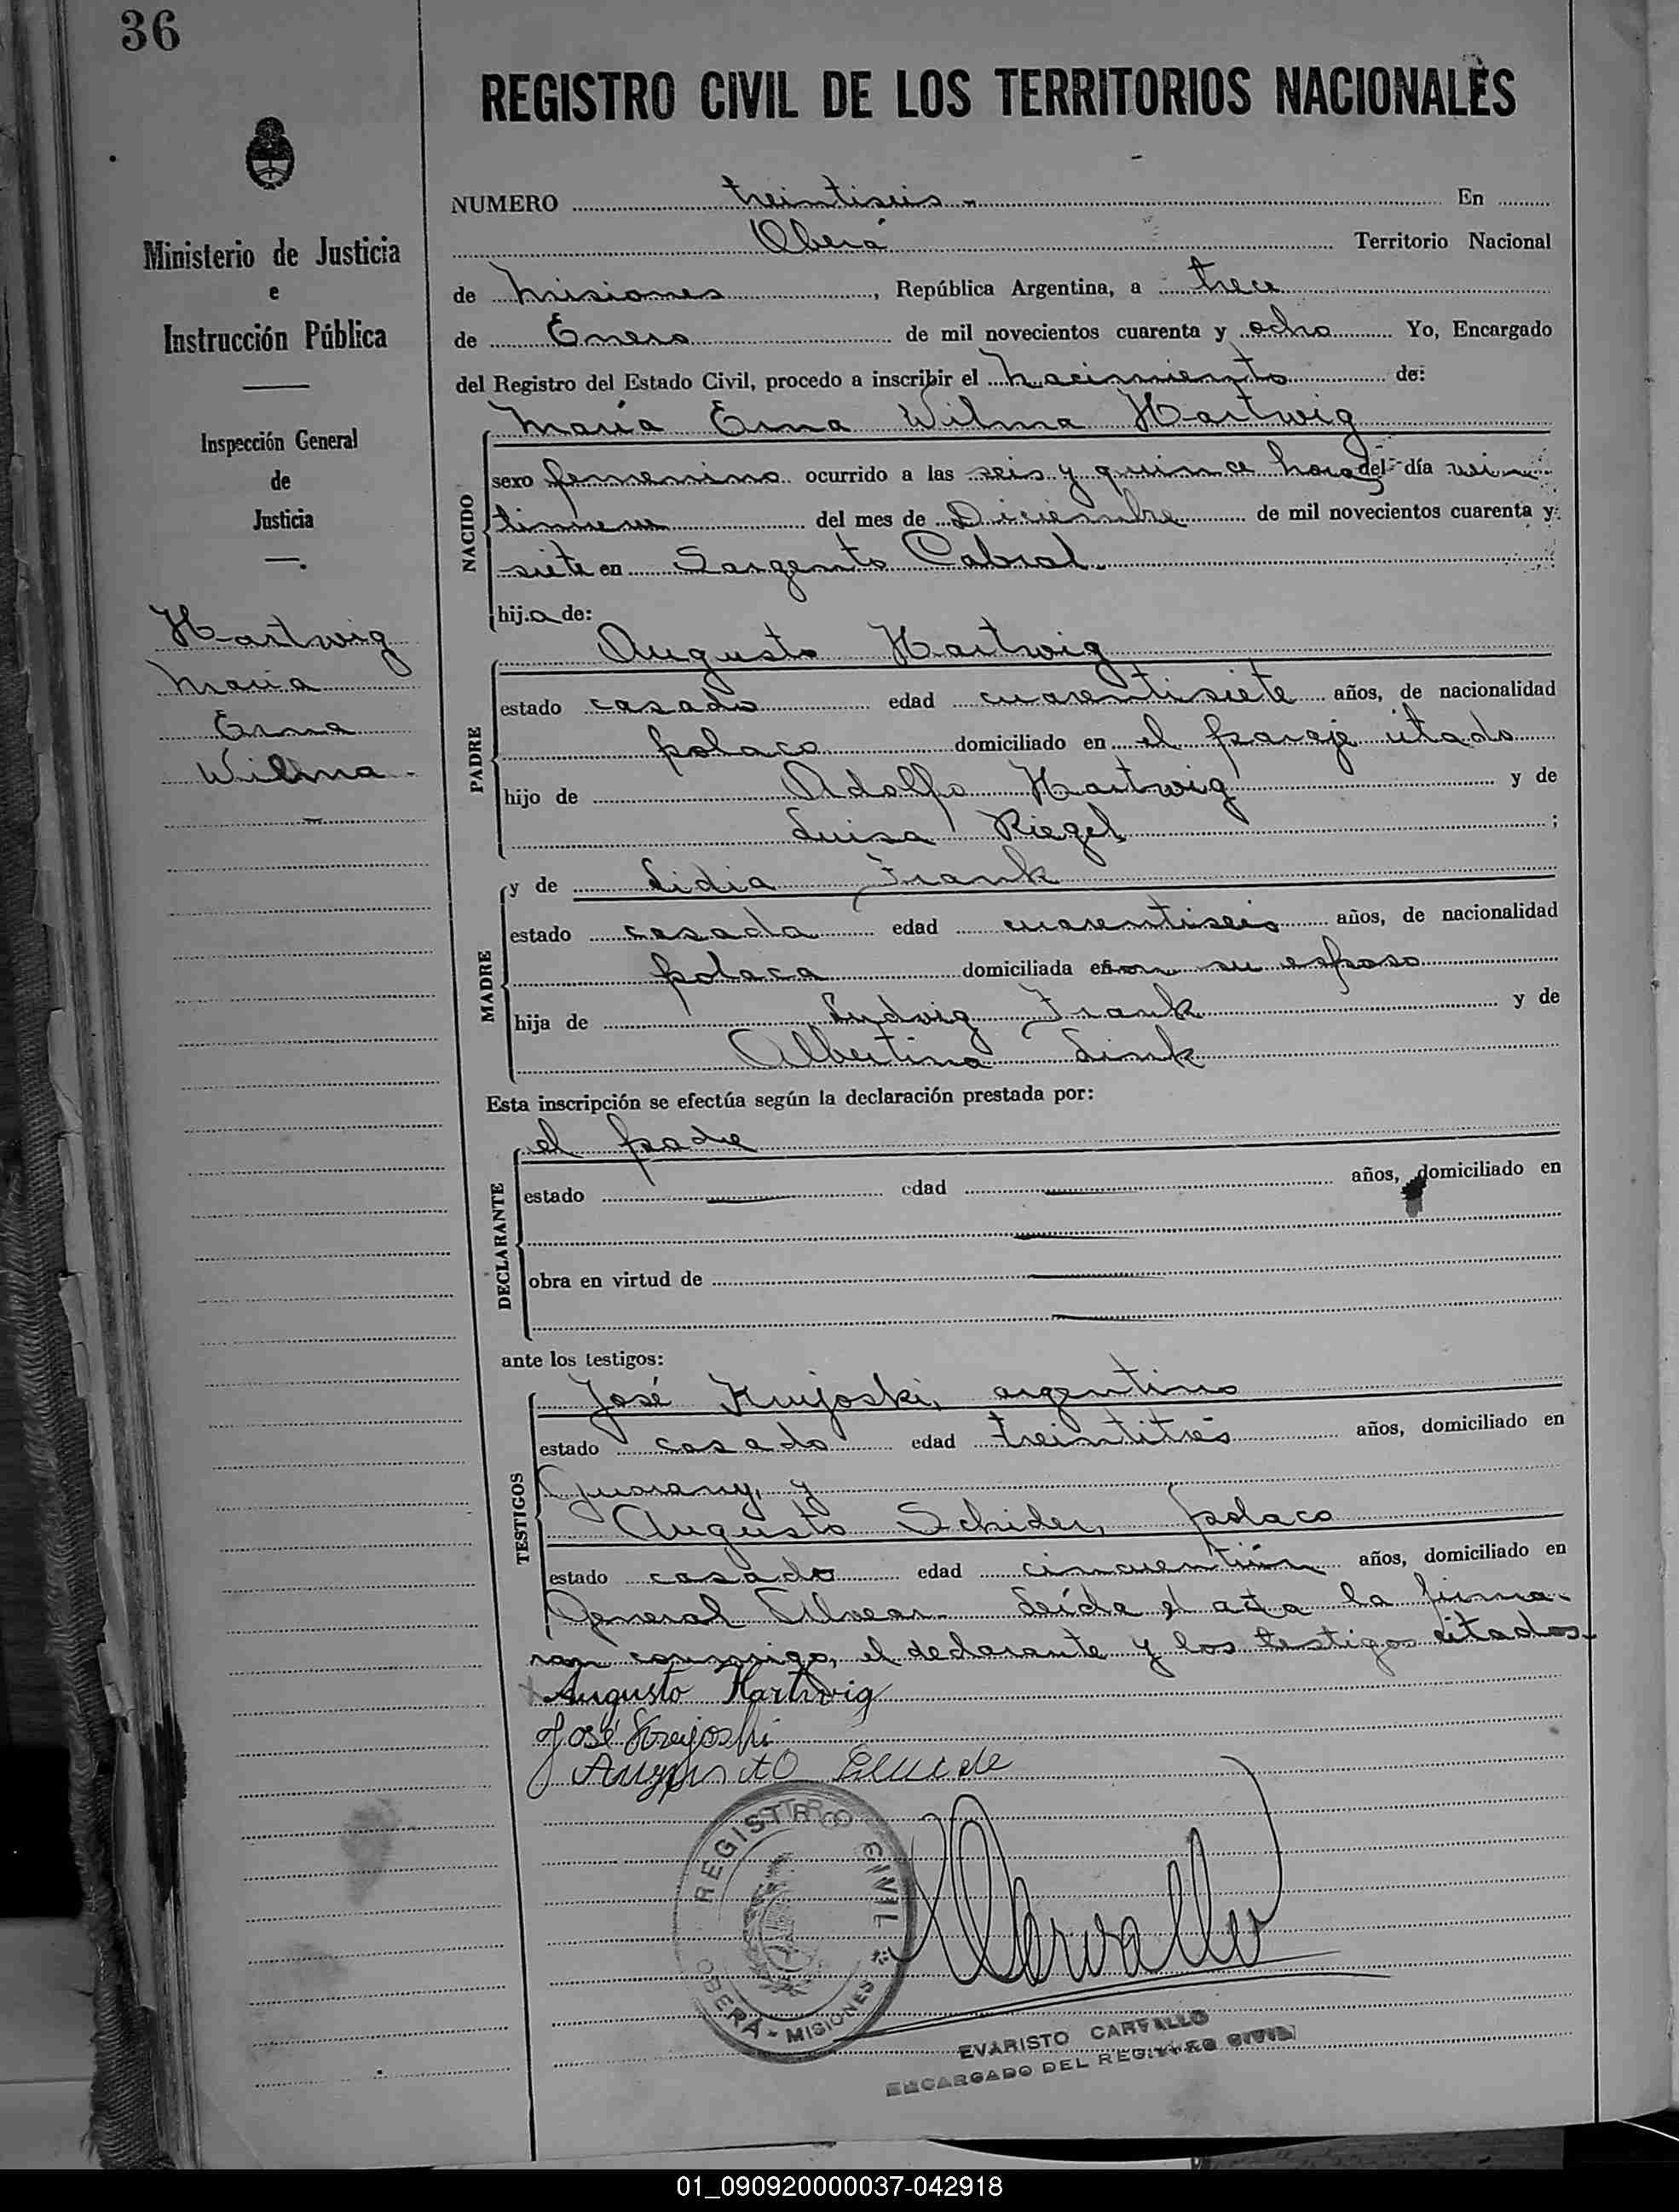 36
REGISTRO CIVIL DE LOS TERRITORIOS NACIONALES
Ministerio de Justicia
e
Instrucción Pública
Inspección General
de
Justicia
Hartwig
Maria
Erna
Wilma
NUMERO treintiseis En
Oberá Territorio Nacional
de Misiones, República Argentina, a trece
de Enero de mil novecientos cuarenta y ocho Yo, Encargado
del Registro del Estado Civil, procedo a inscribir el Nacimiento de:
NACIDO
María Erna Wilma Hartwig
sexo femenino ocurrido a las seis y quince horas del día vein
tinueve del mes de Diciembre de mil novecientos cuarenta y
siete en Sargento Cabral.
hija de:
PADRE
Augusto Hartwig
estado casado edad cuarentisiete años, de nacionalidad
polaco domiciliado en el paraje citado
hijo de Adolfo Hartwig y de
Luisa Riegel ;
MADRE
y de Lidia Frank
estado casada edad cuarentiseis años, de nacionalidad
polaca domiciliada en con su esposo
hija de Ludwig Frank y de
Albertina Link
Esta inscripción se efectúa según la declaración prestada por:
DECLARANTE
el padre
estado edad años, domiciliado en
obra en virtud de
ante los testigos:
TESTIGOS
José argentino
estado casado edad treintitres años, domiciliado en
Guarany, y
Augusto Schider, polaco
estado casado edad cincuentiún años, domiciliado en
General Alvear. Leída el acta la firma-
ron conmigo, el declarante y los testigos citados.
Augusto Hartwig
José
Augusto
REGISTRO CIVIL
OBERÁ - MISIONES
Carvallo
EVARISTO CARVALLO
ENCARGADO DEL REGISTRO CIVIL
01_090920000037-042918